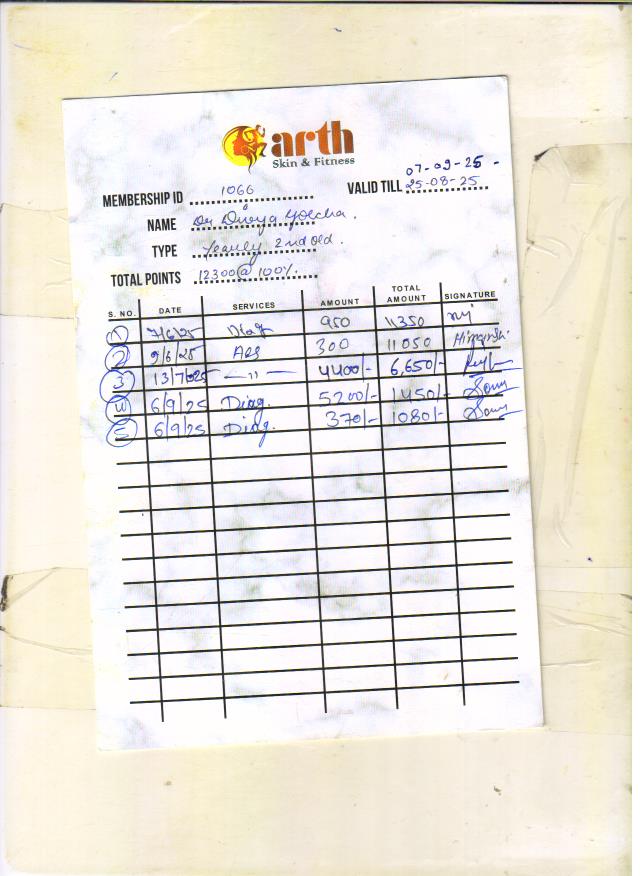 arth
Skin & Fitness
07-09-25 -
MEMBERSHIP ID 1066 VALID TILL 25-08-25
NAME Dr Divya Golcha.
TYPE Yearly 2nd old.
TOTAL POINTS 12300@100%.
S. NO. DATE SERVICES AMOUNT TOTAL AMOUNT SIGNATURE
1 7/6/25 Diag 950 11350
2 9/6/25 Aes 300 11050 Himanshi
3 13/7/2025 —〃— 4400/- 6,650/-
4 6/9/25 Diag. 5200/- 1450/-
5 6/9/25 Diag. 370/- 1080/-